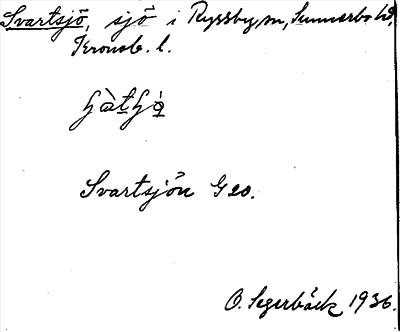 Svartsjö, sjö i Ryssby sn, Sunnerbo hd,
Kronob. l.
Svartsjön Geo.
O. Segerbäck 1936.